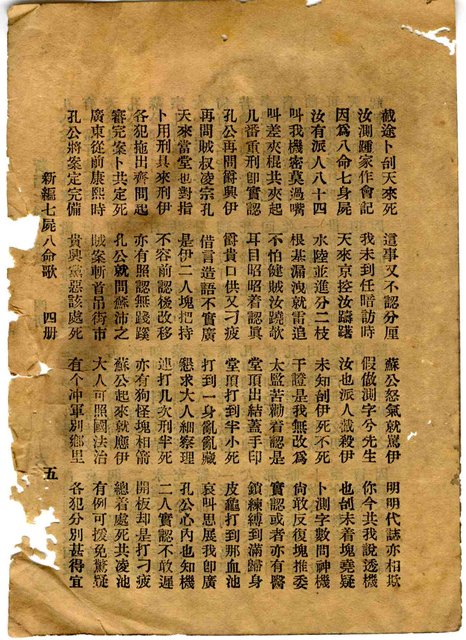 截途卜刣天來死 這事又不認分厘 蘇公怒氣就罵伊 明明代誌亦相欺
汝測踵家作會記 我未到任暗訪時 假做測字兮先生 你今共我說透機
因爲八命七身屍 天來京控汝躊躇 汝也派人截殺伊 也刣未着塊堯疑
汝有派人八十四 水陸並進分二枝 未知刣伊死不死 卜測字數問神機
叫我機密莫過嘴 根基漏洩就雷追 干證是我無改爲 倘敢反復塊推委
叫差夾棍共夾起 不怕健賊汝蹺欹 太監苦勸着認是 實認或者亦有醫
几番重刑即實認 耳目昭昭着認眞 堂頂出結蓋手印 鎖練縛到滿歸身
孔公再問爵興伊 爵貴口供又刁疲 堂頂打到半小死 皮龜打到那血池
再問賊叔凌宗孔 借言造語不實廣 打到一身亂亂藏 哀叫思展我即廣
天來當堂也對指 是伊二人塊把持 懇求大人細察理 孔公心內也知機
卜用刑具來刑伊 不容前認後改移 連打几次刑半死 二人實認不敢遲
各犯拖出齊問起 亦有照認無踐蹊 亦有狗怪塊相箭 開板却是打刁疲
審完案卜共定死 孔公就問蘇沛之 蘇公起來就應伊 總着處死共凌池
廣東從前康熙時 賊案斬首吊街市 大人可照國法治 有例可援免驚疑
孔公將案定完備 貴興黨惡該處死 有个冲軍別鄉里 各犯分別甚得宜
新編七屍八命歌 四册 五